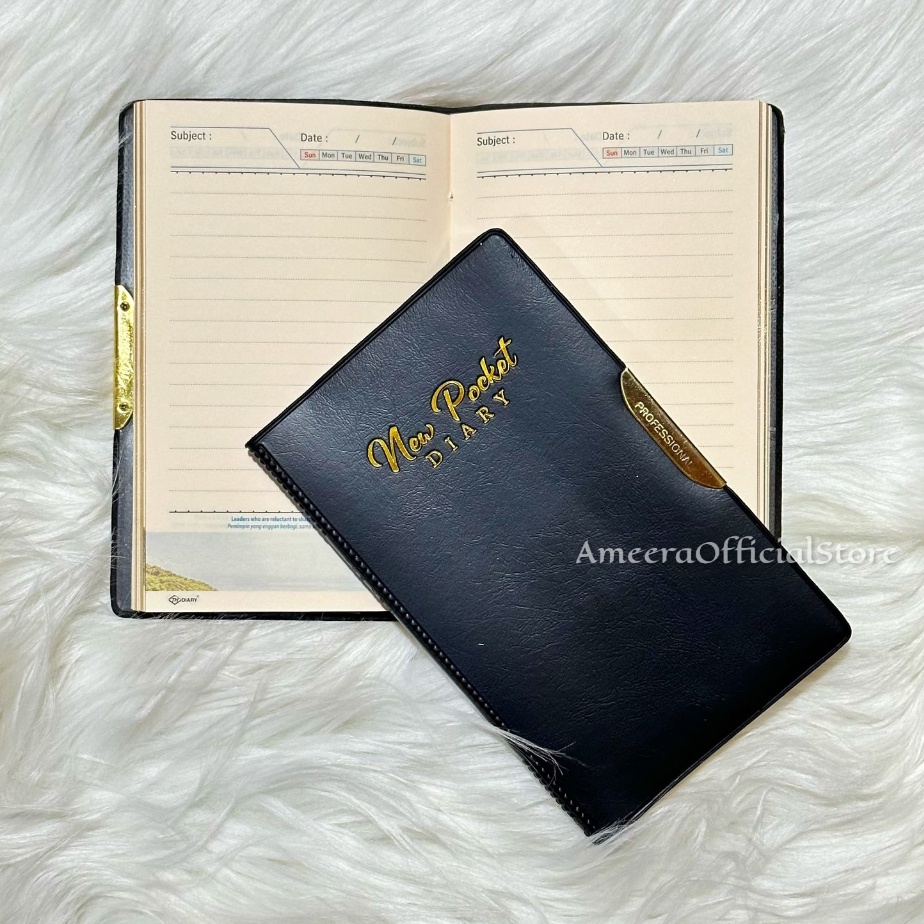 Subject :
Date : / /
Sun Mon Tue Wed Thu Fri Sat
Subject :
Date : / /
Sun Mon Tue Wed Thu Fri Sat
New Pocket
DIARY
PROFESSIONAL
Leaders who are reluctant to
Pemimpin yang enggan berbagi,
DIARY
AmeeraOfficialStore